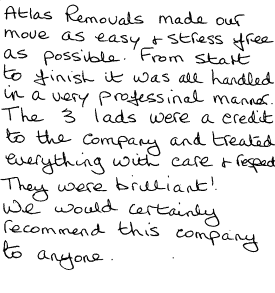 Atlas Removals made our
move as easy + stress free
as possible. From start
to finish it was all handled
in a very professinal manner.
The 3 lads were a credit
to the company and treated
everything with care + respect
They were brilliant!
We would certainly
recommend this company
to anyone.